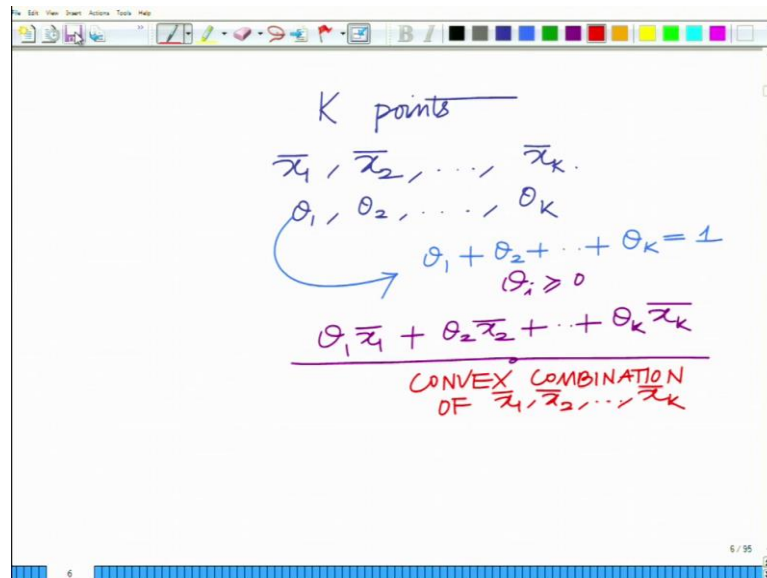 File Edit View Insert Actions Tools Help
B I
K points
x̄₁, x̄₂, ..., x̄ₖ.
θ₁, θ₂, ...., θ_K
θ₁ + θ₂ + ·· + θ_K = 1
θᵢ ≥ 0
θ₁x̄₁ + θ₂x̄₂ + ·· + θₖx̄ₖ
CONVEX COMBINATION
OF x̄₁, x̄₂, ..., x̄ₖ
6 / 95
6